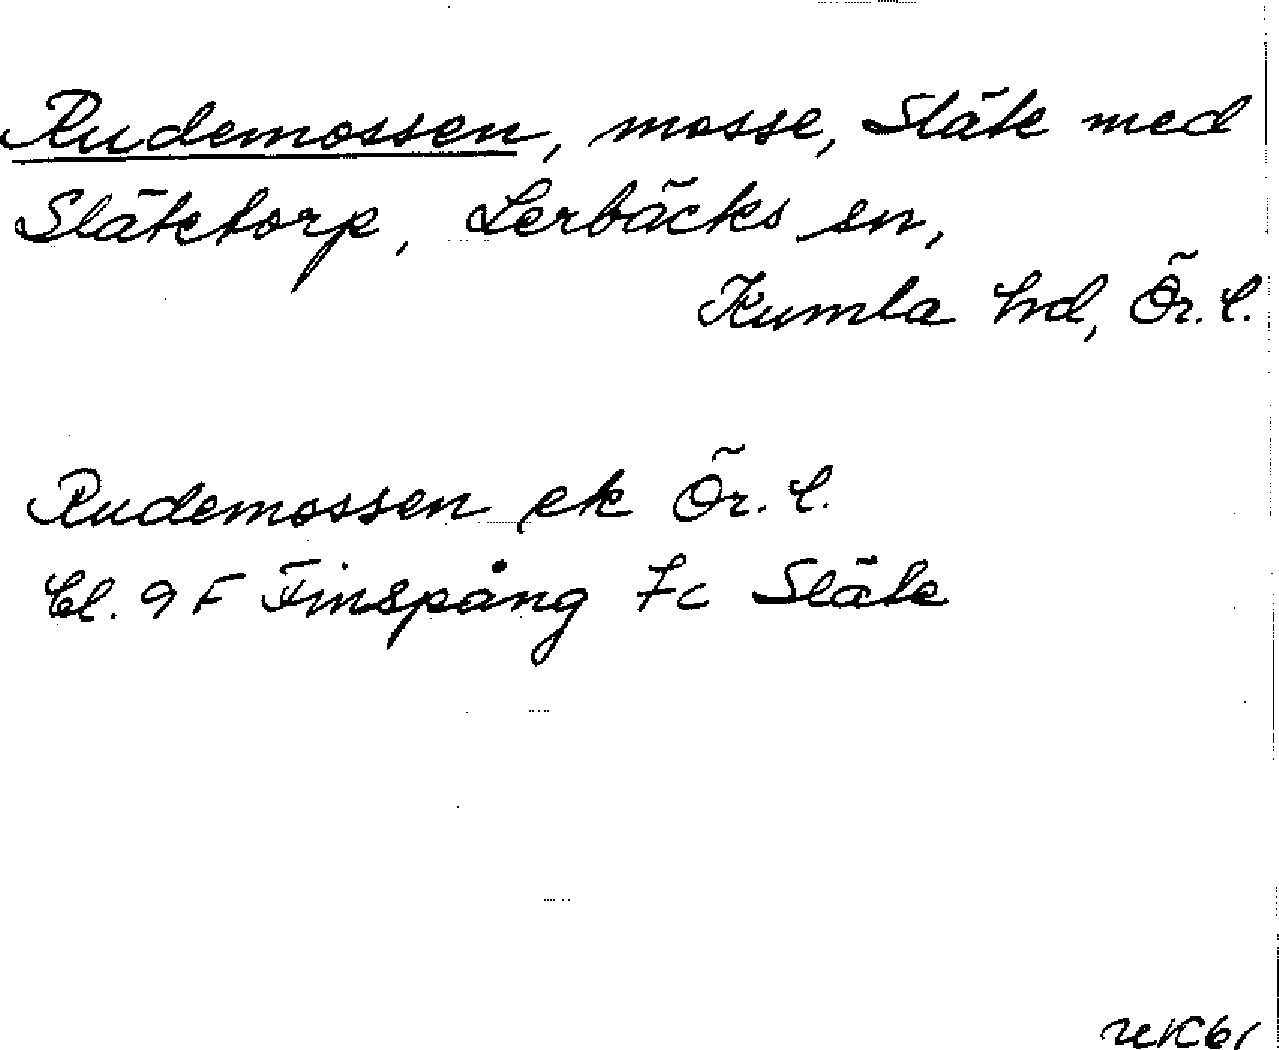 Rudemossen, mosse, Släte med
Slätetorp, Lerbäcks sn,
Kumla hd, Ör. l.
Rudemossen ek Ör. l.
bl. 9 F Finspång 7c Släte